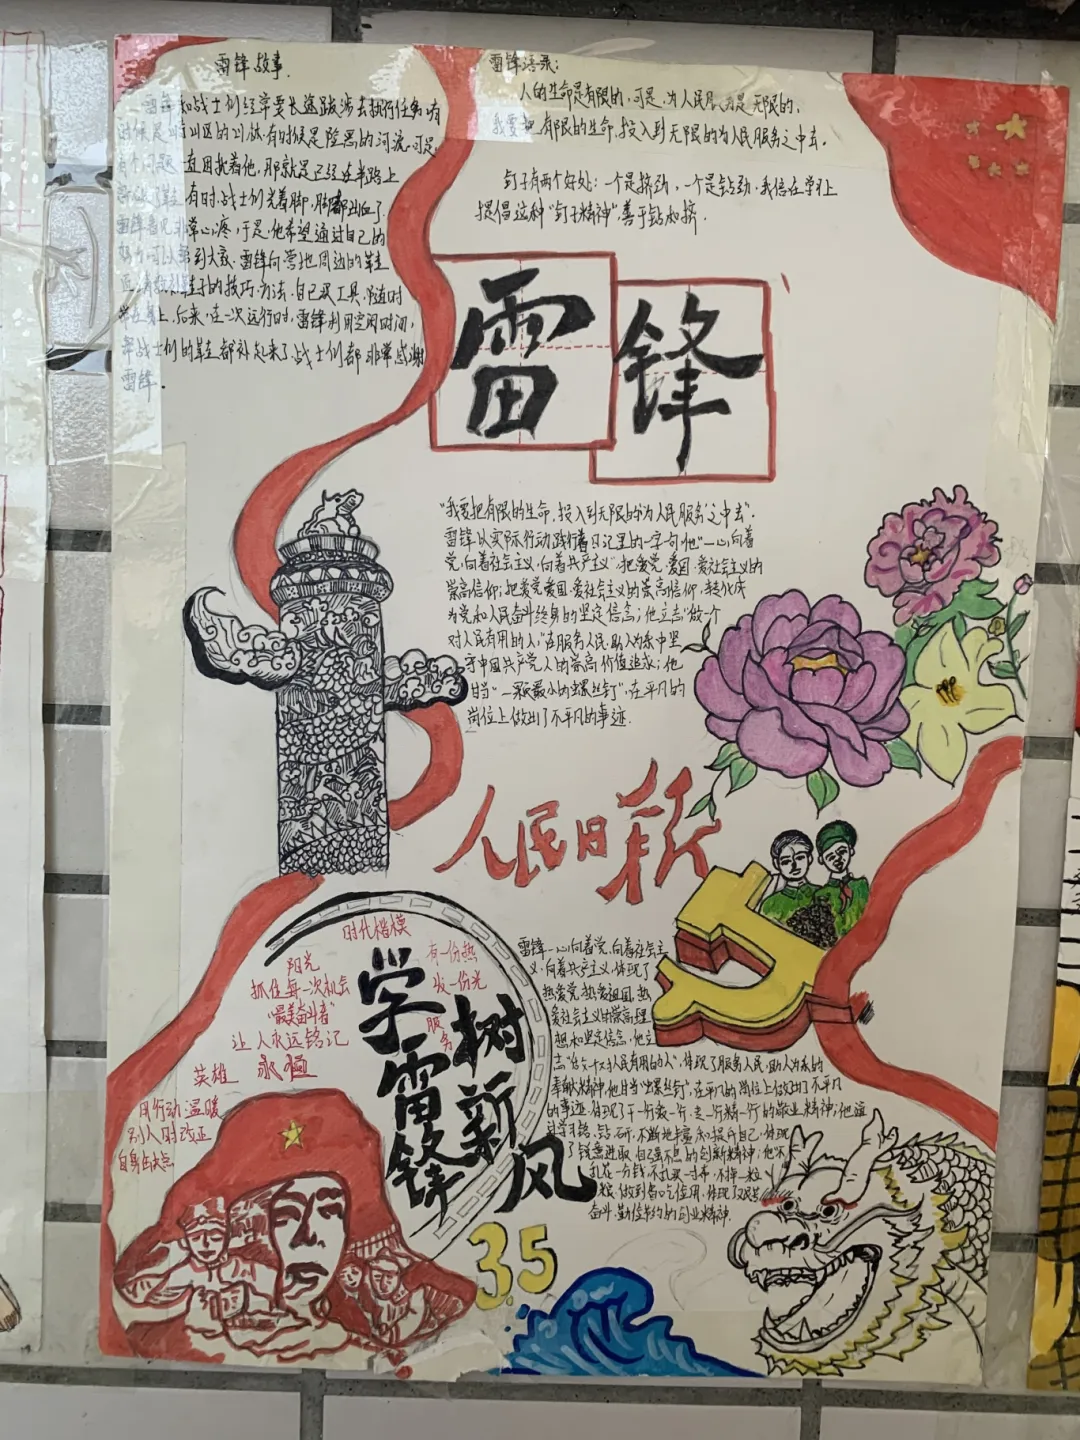 雷锋故事.
和战士们经常要长途跋涉去执行任务.有
山区的小林有时候是险恶的河流.可是
一直困扰着他,那就是已经在半路上
有时,战士们光着脚,脚都出血了.
雷锋看见非常心疼,于是,他希望通过自己的
努力可以帮到大家.雷锋向营地周边的鞋
鞋子的技巧方法,自己买工具,随时
带在身上,后来,在一次运行时,雷锋利用空闲时间,
将战士们的鞋都补起来了,战士们都非常感谢
雷锋.
雷锋语录:
人的生命是有限的,可是,为人民服务是无限的,
我要把有限的生命,投入到无限的为人民服务之中去.
钉子有两个好处:一个是挤劲,一个是钻劲,我信在学习上
提倡这种"钉子精神"善于钻和挤.
雷锋
"我要把有限的生命,投入到无限的为人民服务之中去".
雷锋以实际行动践行着日记里的一字一句他"一心向着
党,向着社会主义,向着共产主义"把爱党、爱国、爱社会主义的
崇高信仰;把爱党爱国、爱社会主义的崇高信仰,转化成
为党和人民奋斗终身的坚定信念;他立志"做一个
对人民有用的人",在服务人民、助人为乐中坚
守中国共产党人的崇高价值追求;他
甘当"一颗最小的螺丝钉",在平凡的
岗位上做出了不平凡的事迹.
人民日新
时代楷模
阳光
抓住每一次机会
"最美奋斗者"
让人永远铭记
英雄 永恒
用行动温暖
别人时改正
自身缺点
有一份热
发一份光
服务
学雷锋
树新风
3.5
雷锋一心向着党,向着社会主
义,向着共产主义,体现了
热爱党、热爱祖国、热
爱社会主义的崇高理
想和坚定信念,他立
志"做一个对人民有用的人",体现了服务人民、助人为乐的
奉献精神,他甘当"螺丝钉",在平凡的岗位上做出了不平凡
的事迹,体现了干一行爱一行、专一行精一行的敬业精神;他
学习钻研,不断地丰富和提升自己,体现
了锐意进取、自强不息的创新精神;他不
乱花一分钱,不乱买一寸布,不掉一粒
粮,做到省吃俭用,体现了艰苦
奋斗、勤俭节约的创业精神.